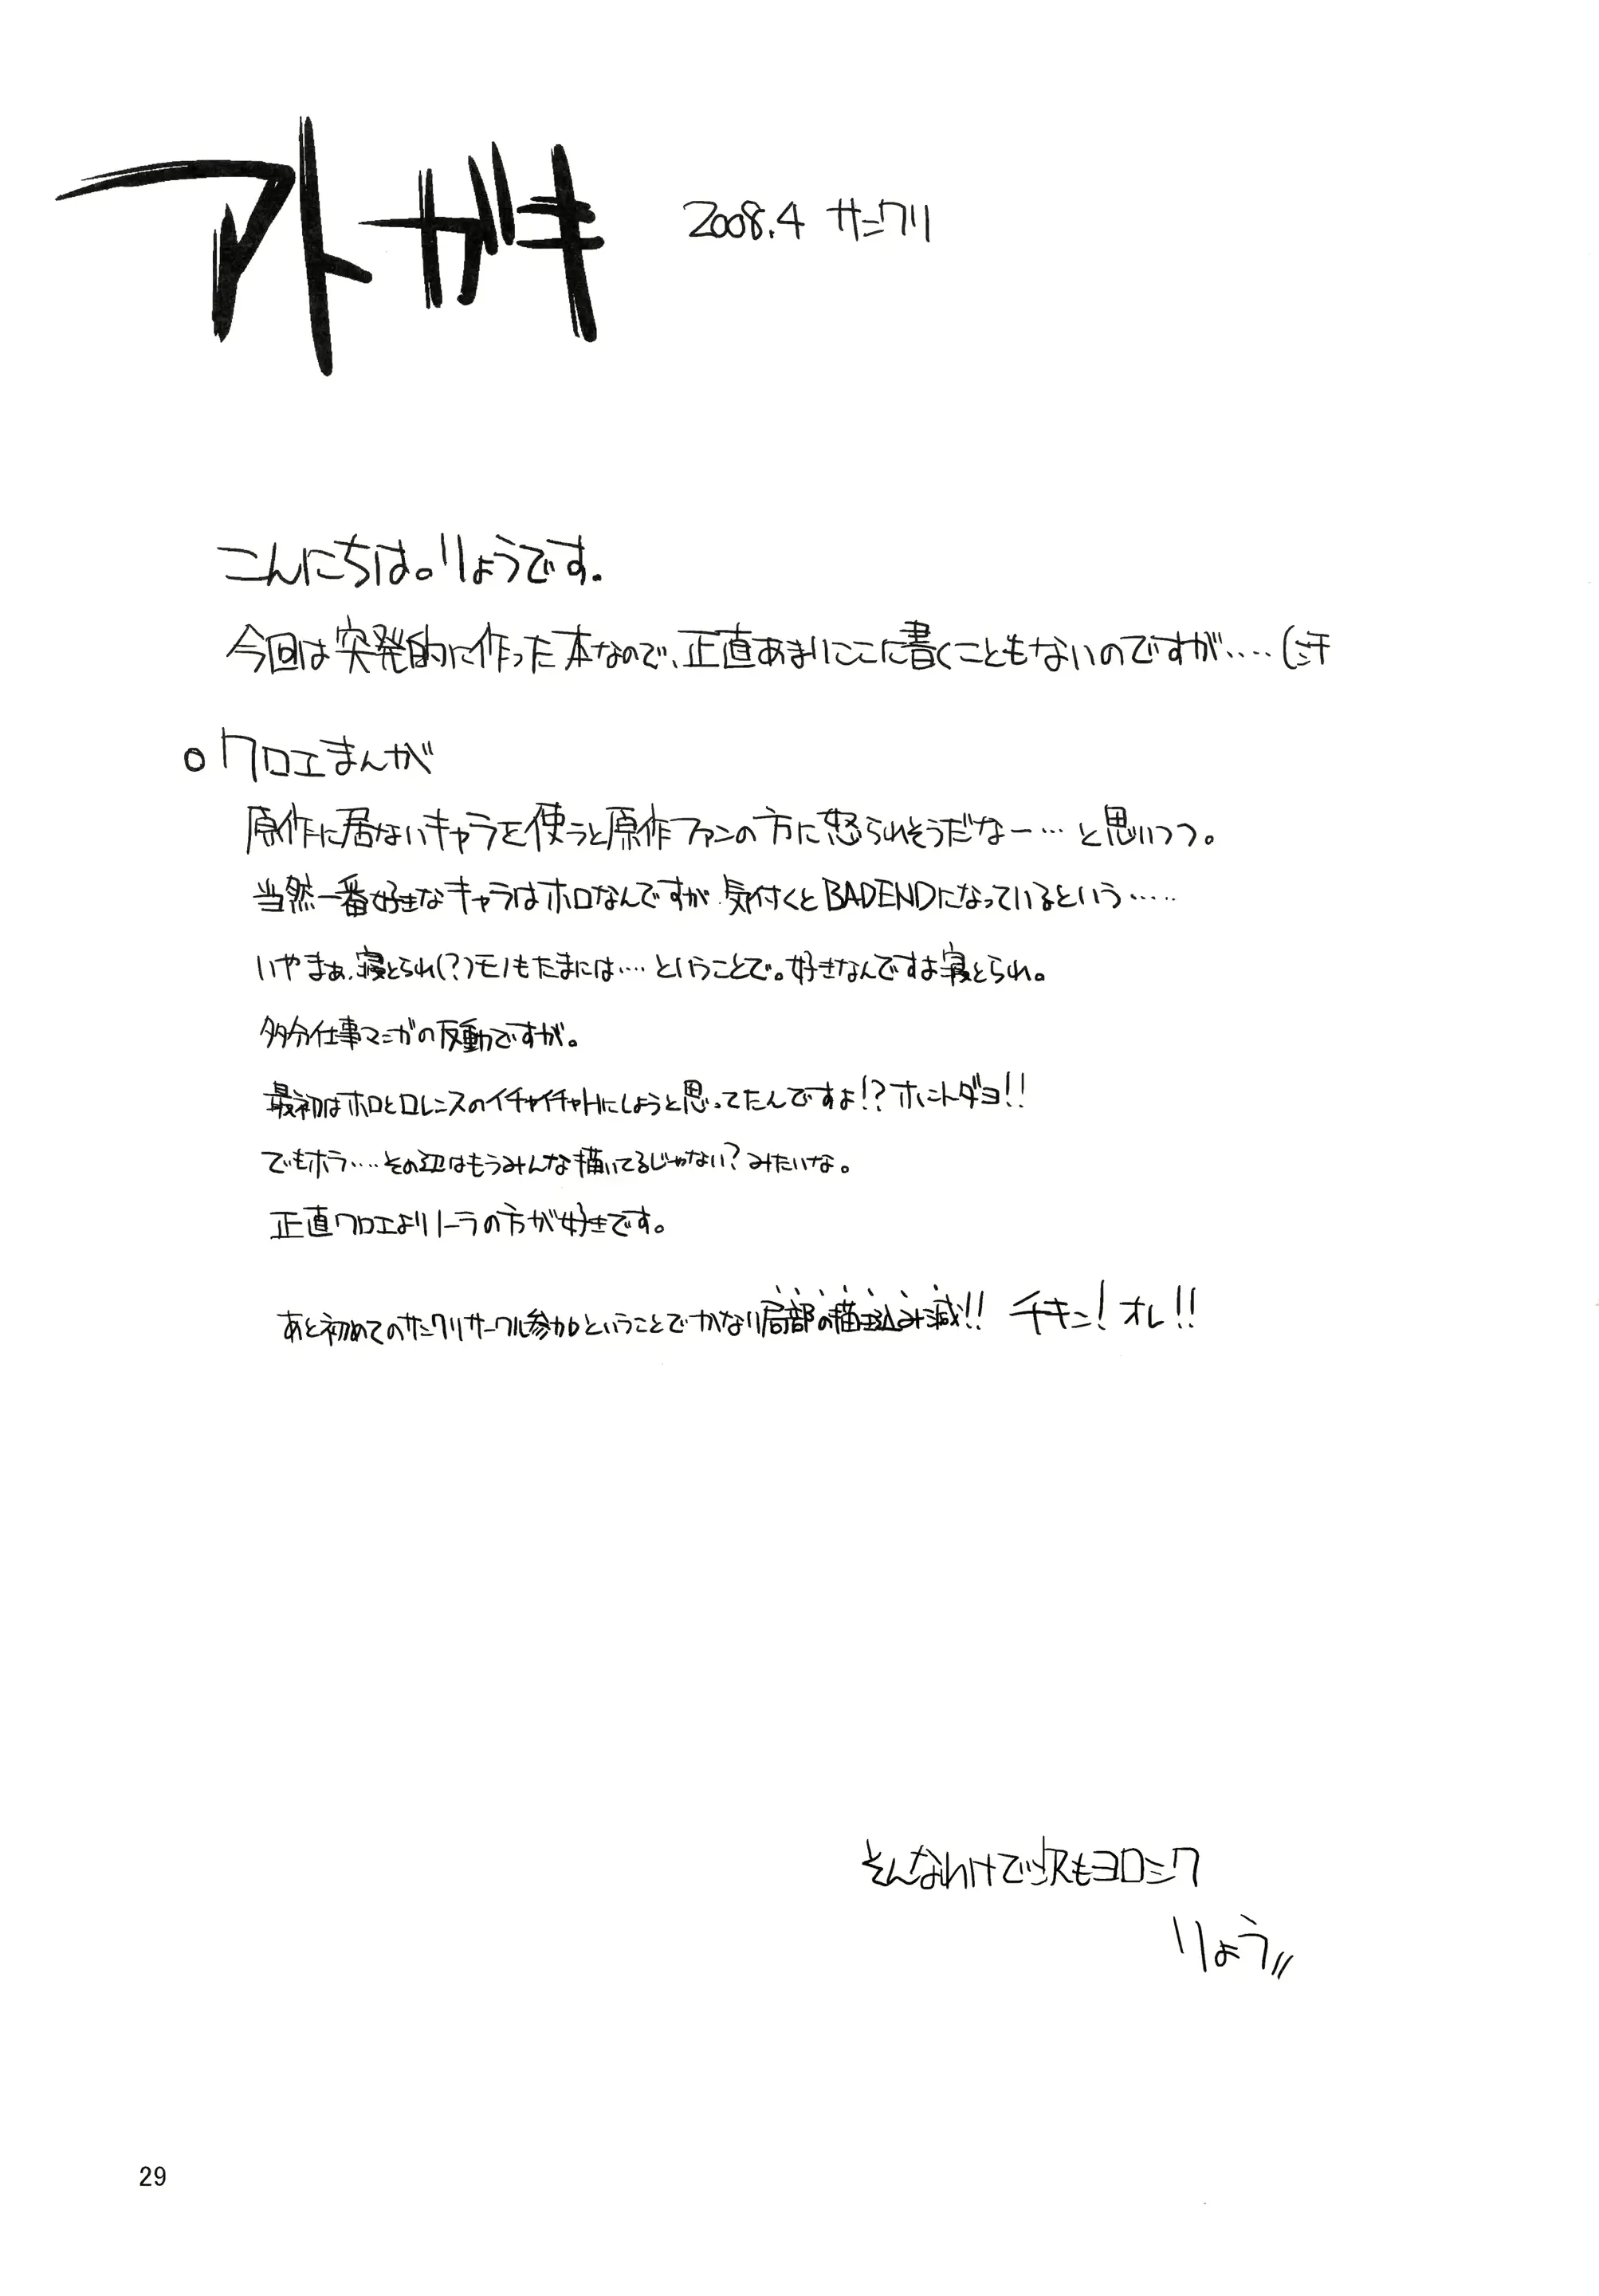 アトガキ 2008.4 サンクリ
こんにちは。りょうです。
今回は突発的に作った本なので、正直あまりここに書くこともないのですが‥‥(汗
○クロエまんが
原作に居ないキャラを使うと原作ファンの方に怒られそうだなー…と思いつつ。
当然一番好きなキャラはホロなんですが気付くとBADENDになっているという‥‥‥
いやまぁ、寝とられ(?)モノもたまには‥‥ということで。好きなんですよ寝とられ。
多分仕事マンガの反動ですが。
最初はホロとロレンスのイチャイチャHにしようと思ってたんですよ!?ホントダヨ!!
でもホラ‥‥その辺はもうみんな描いてるじゃない?みたいな。
正直クロエよりノーラの方が好きです。
あと初めてのサンクリサークル参加ということでかなり局部の描き込み減!! チキン!オレ!!
そんなわけで次もヨロシク
りょう//
29